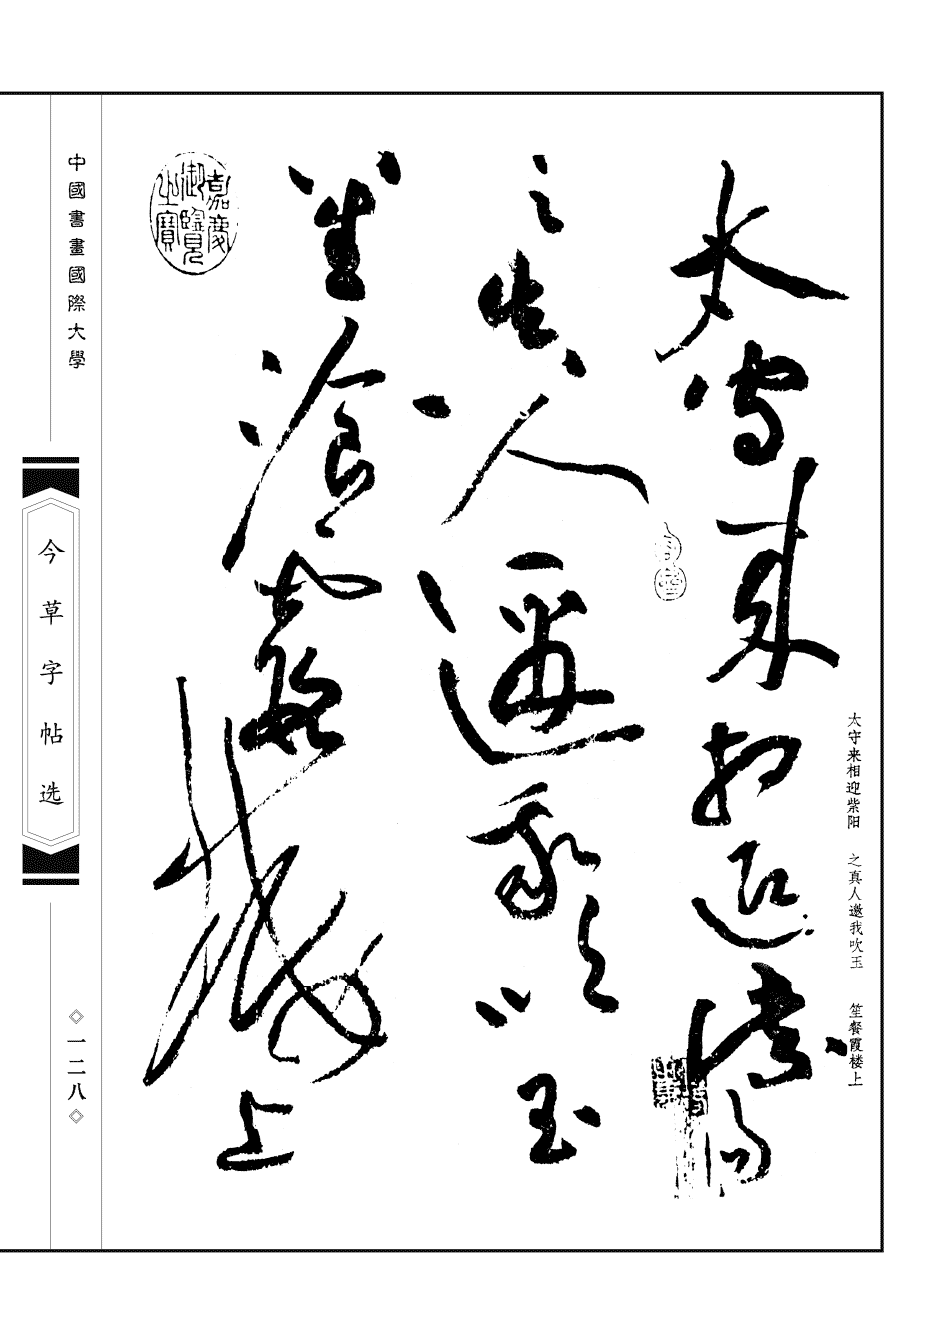 太守来相迎紫阳
之真人邀我吹玉
笙餐霞楼上
太守来相迎紫阳 之真人邀我吹玉 笙餐霞楼上
嘉慶御覽之寶
中國書畫國際大學
今草字帖选
一二八